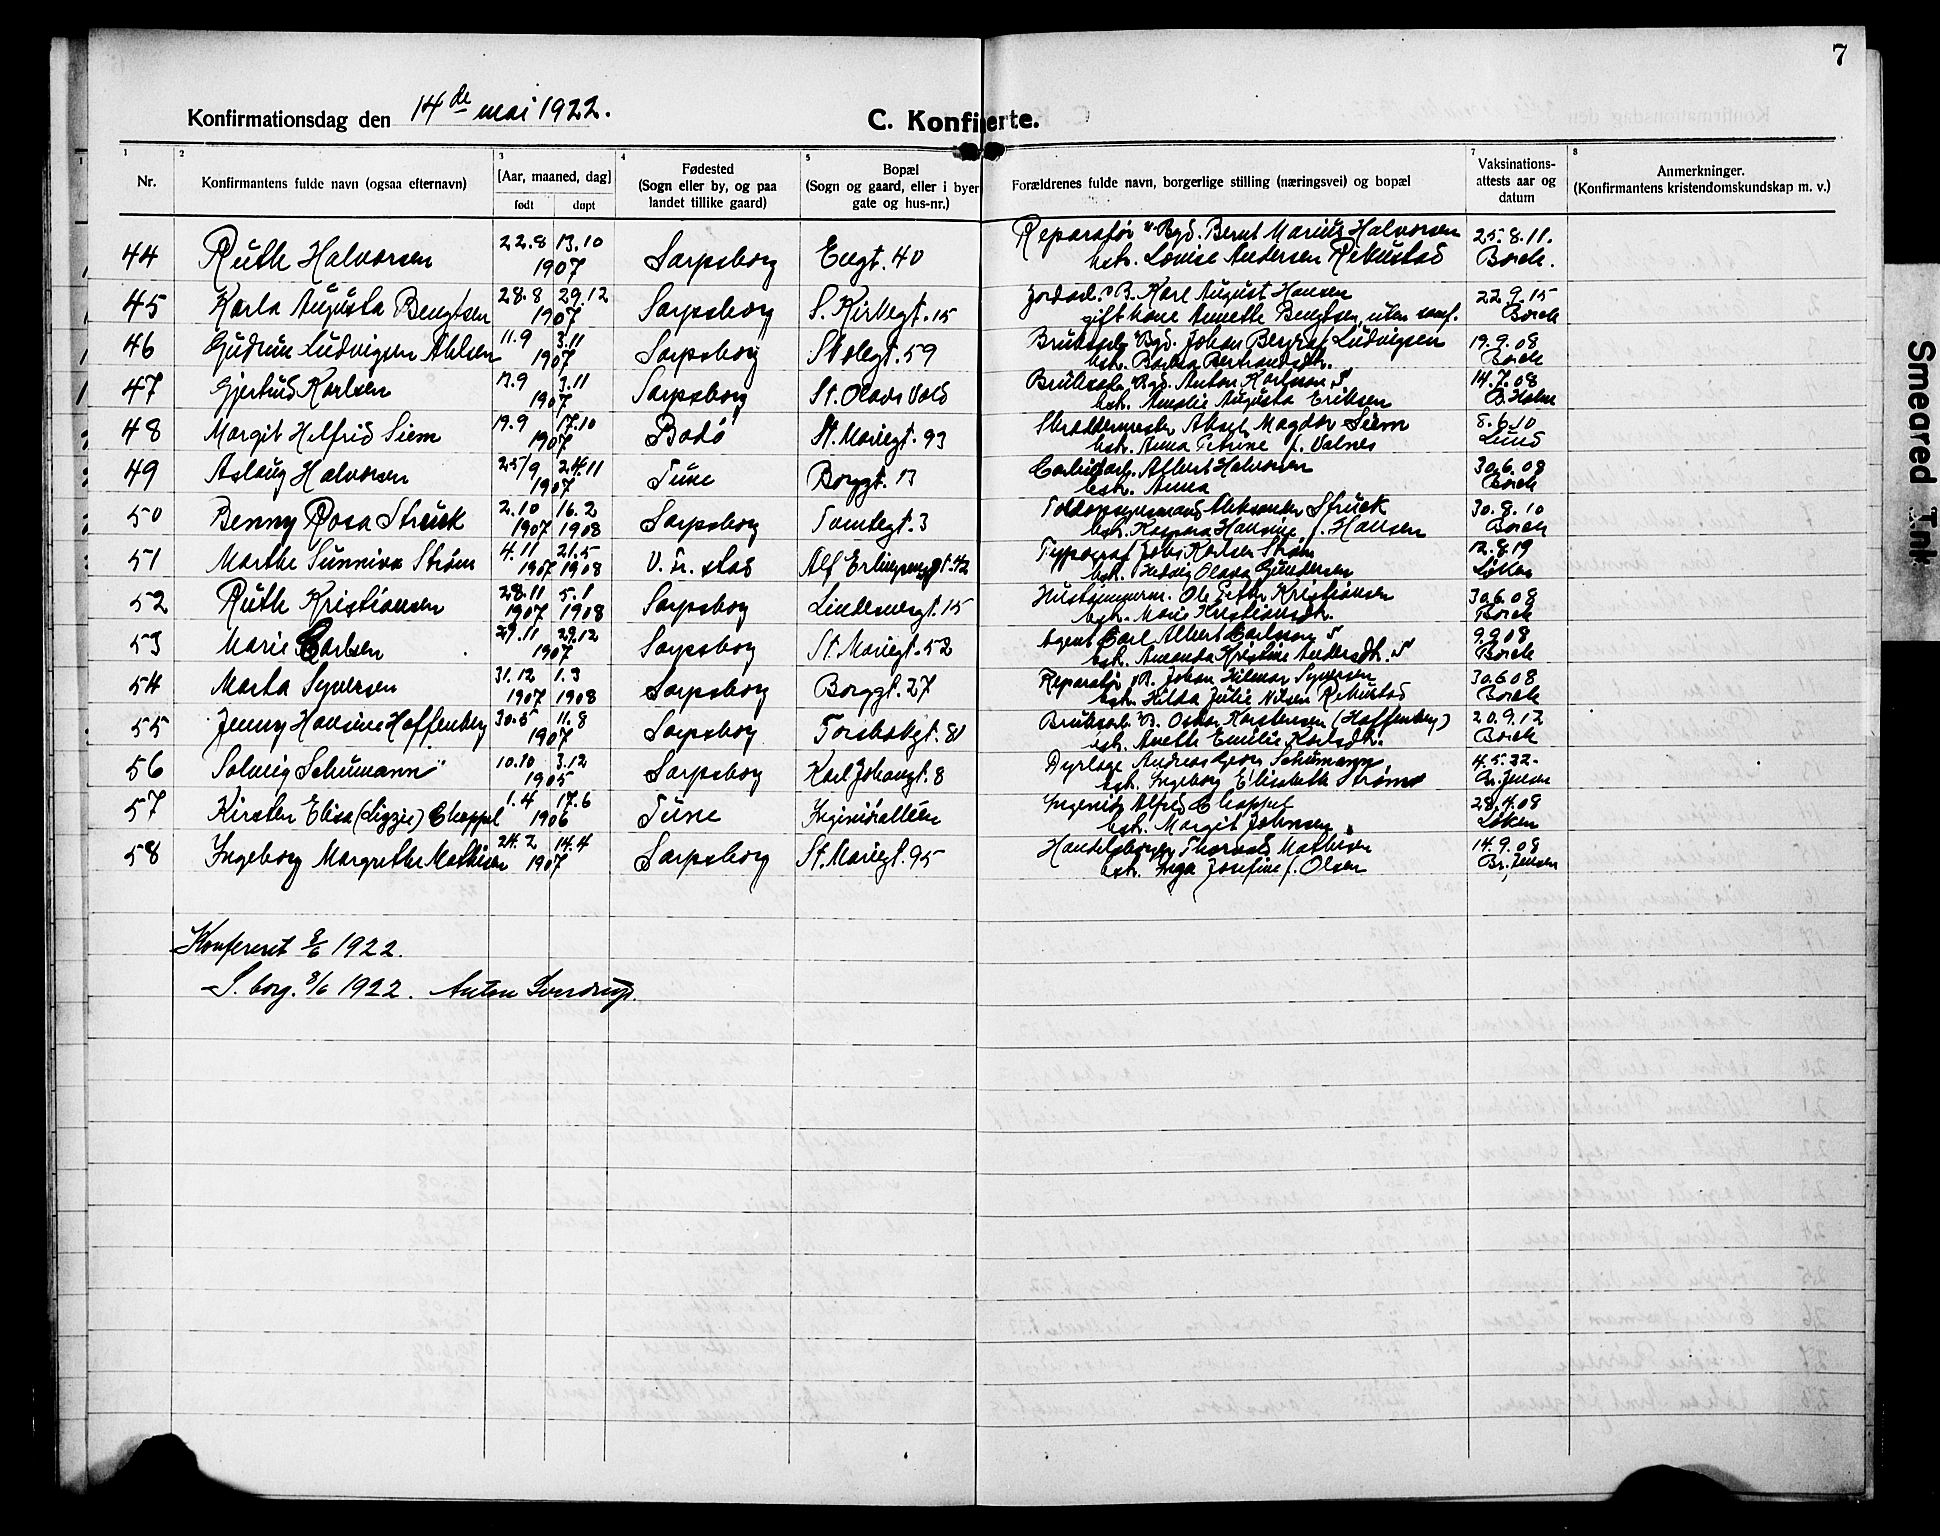 7
Konfirmationsdag den 14de mai 1922.
C. Konfirmerte.
1 2 3 4 5 7 8
Nr.
Konfirmantens fulde navn (ogsaa efternavn)
[Aar, maaned, dag]
født døpt
Fødested
(Sogn eller by, og paa
landet tillike gaard)
Bopæl
(Sogn og gaard, eller i byer
gate og hus-nr.)
Forældrenes fulde navn, borgerlige stilling (næringsvei) og bopæl
Vaksinations-
attests aar og
datum
Anmerkninger.
(Konfirmantens kristendomskundskap m. v.)
22.8 13.10 Reparatør Bgd. Bernt Marius Halvorsen 25.8.11.
44 Ruth Halvorsen 1907 Sarpsborg Engt. 40 hstr. Lovise Andersen Rekustad Borch.
28.8 29.12 Jordarb. B. Karl August Hansen 22.9.15
45 Karla Augusta Bengtsen 1907 Sarpsborg S. Kirkegt. 15 gift kone Annette Bengtsen, uten samf. Borch
11.9 3.11 Bruksarb. Bgd. Johan Ludvigsen 19.9.08
46 Gudrun Ludvigsen Ahlsen 1907 Sarpsborg Stolegt. 59 hstr. Bertrandsdtr. Borch
13.9 3.11 Bruksarb. Bgd. Anton Karlsson S 14.7.08
47 Gjertrud Karlsen 1907 Sarpsborg St. Olavs Vold hstr. Amalie Augusta Eriksen B. Holm
19.9 17.10 Skræddermester Aksel Magdor Siem 8.6.10
48 Margit Helfrid Siem 1907 Bodø St. Mariegt. 93 hstr. Anna Petrine f. Valnes Lund
25/9 24.11 Carbidarb. Albert Halvorsen 30.6.08
49 Aslaug Halvorsen 1907 Tune Borggt. 13 hstr. Anna Borch
2.10 16.2 Toldopsynsmand Aleksander Struck 30.8.10
50 Benny Rosa Struck 1907 1908 Sarpsborg Tomtegt. 3 hstr. Kaspara Hansine f. Hansen Borch
4.11 21.5 Typograf Johs Karlsen Strøm 12.8.19
51 Marthe Sunniva Strøm 1907 1908 V. Fr. stad Alf Erlingsensgt. 42 hstr. Hedvig Olava Gundersen Løken
28.11 5.1 Hustømmerm. Ole Petter Kristiansen 30.6.08
52 Ruth Kristiansen 1907 1908 Sarpsborg Lindemansgt. 15 hstr. Marie Kristiansdtr. Borch
29.11 29.12 Agent Carl Albert Carlsson S 9.9.08
53 Marie Carlsen 1907 Sarpsborg St. Mariegt. 52 hstr. Amanda Kristine Andersdtr. S Borch
31.12 1.3 Reparatør B. Johan Hilmar Syversen 30.6.08
54 Marta Syversen 1907 1908 Sarpsborg Borggt. 27 hstr. Hilda Julie Nilsen Rekustad Borch
30.5 11.8 Bruksarb. B. Oskar Karstensen (Haffenberg) 20.9.12
55 Jenny Hansine Haffenberg 1907 Sarpsborg Torsbekgt. 81 hstr. Anette Emilie Karlsdtr. Borch
10.10 3.12 Dyrlæge Andreas Georg Schumann, 4.5.22
56 Solveig Schumann 1905 Sarpsborg Karl Johansgt. 8 hstr. Ingeborg Elisabeth Strøm Br. Jensen
1.4 17.6 Ingeniør Alfred Chappel 28.4.08
57 Kirsten Elisa (Lizzie) Chappel 1906 Tune Ingeniøralléen hstr. Margit Johnsen Løken
24.2 14.4 Handelsborger Thorvald Mathisen 14.9.08
58 Ingeborg Margrethe Mathisen 1907 Sarpsborg St. Mariegt. 95 hstr. Inga Josefine f. Olsen Br. Jensen
Konfereret 8/6 1922.
S. borg. 8/6 1922. Anton Sverdrup.
Smeared Ink